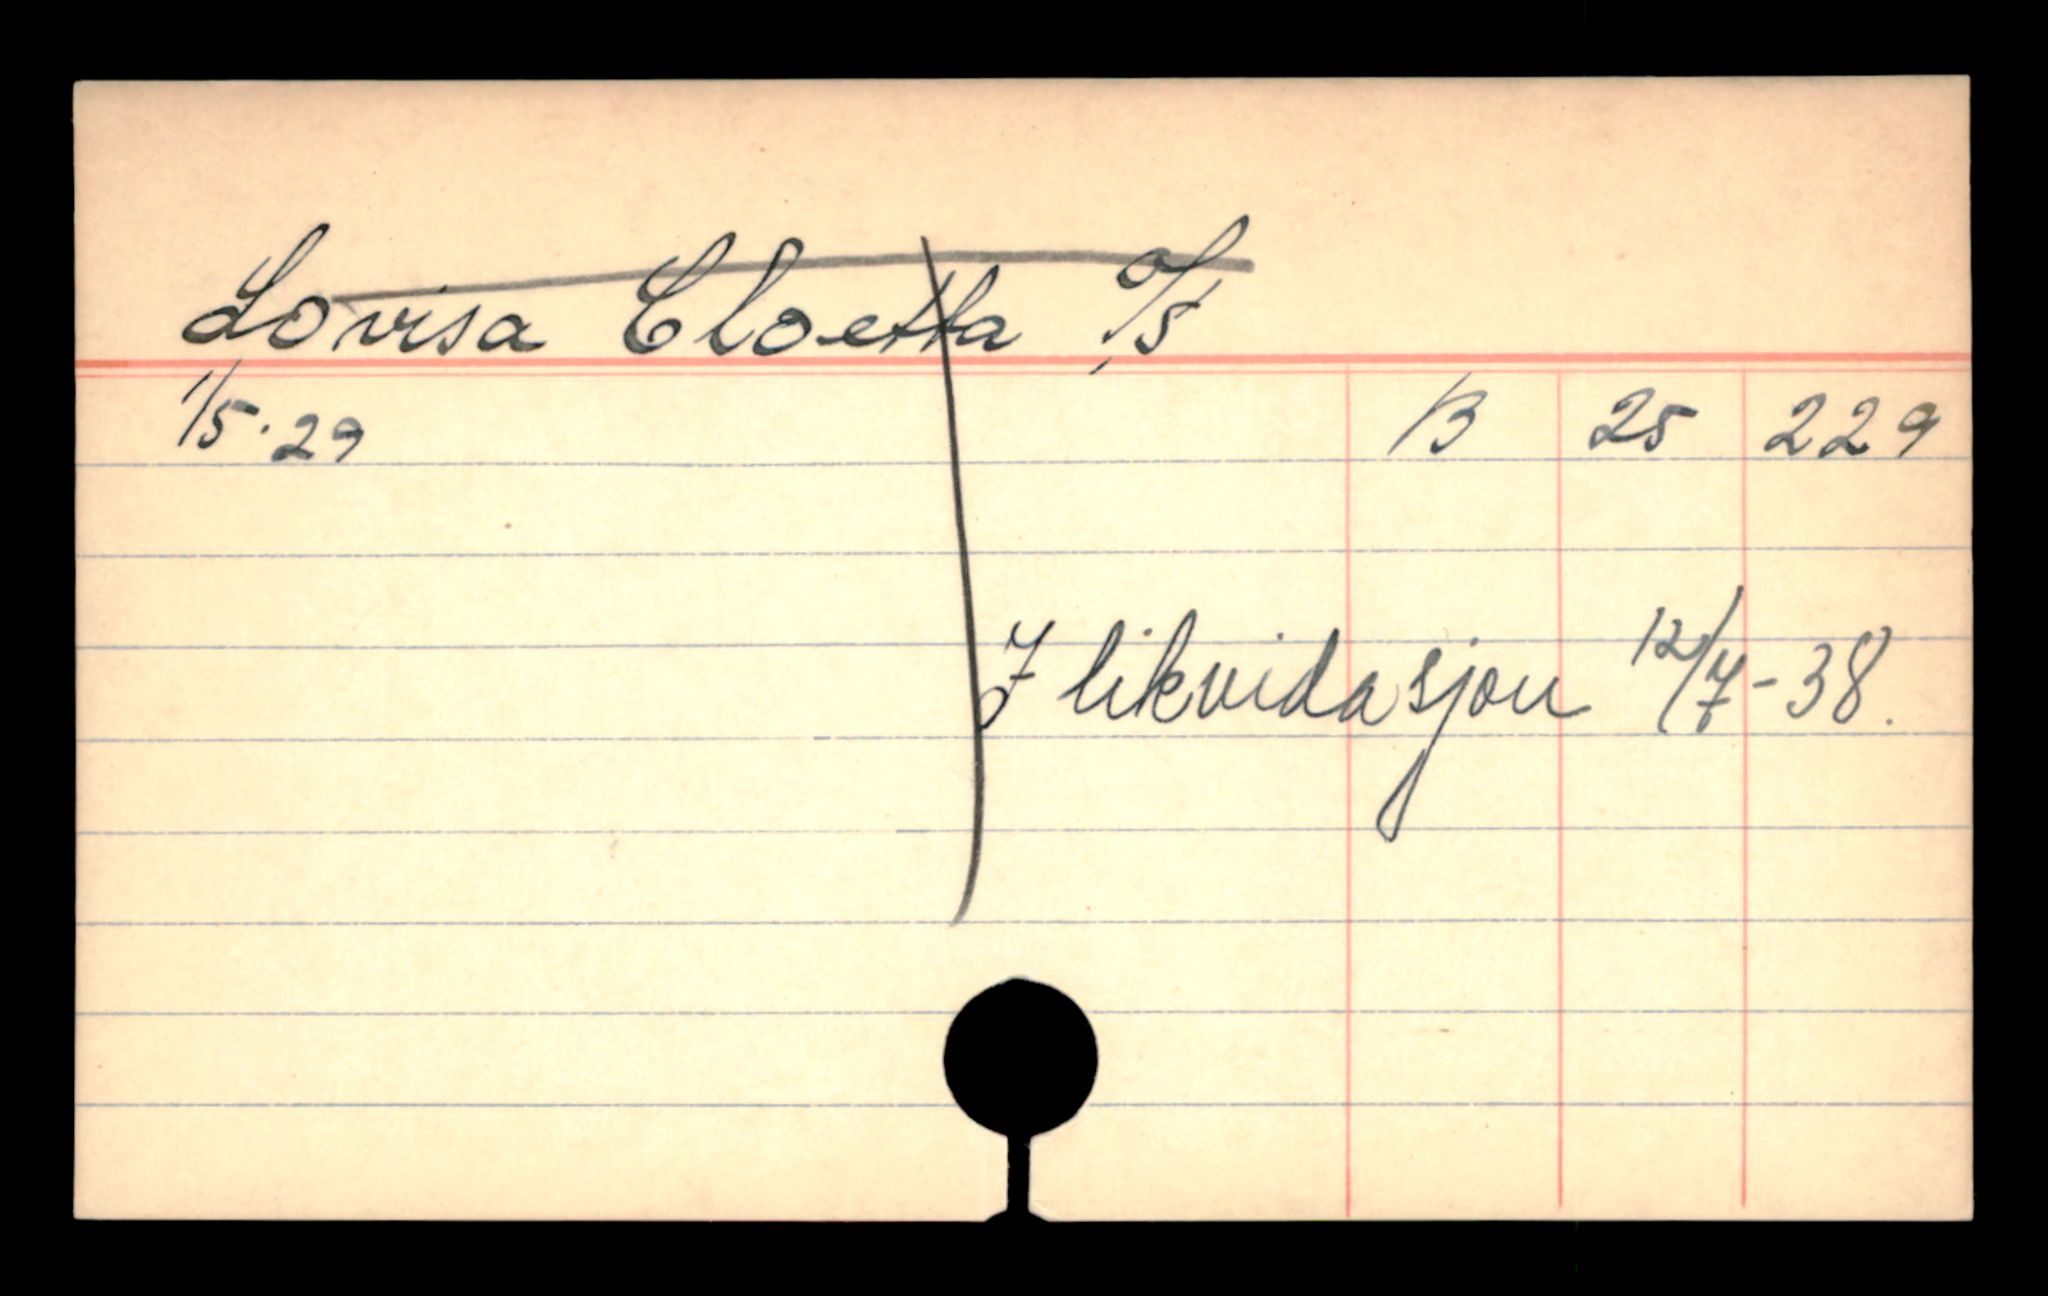 Lovisa Cloetta A/S
1/5.29 B 25 229
I likvidasjon 12/7-38.